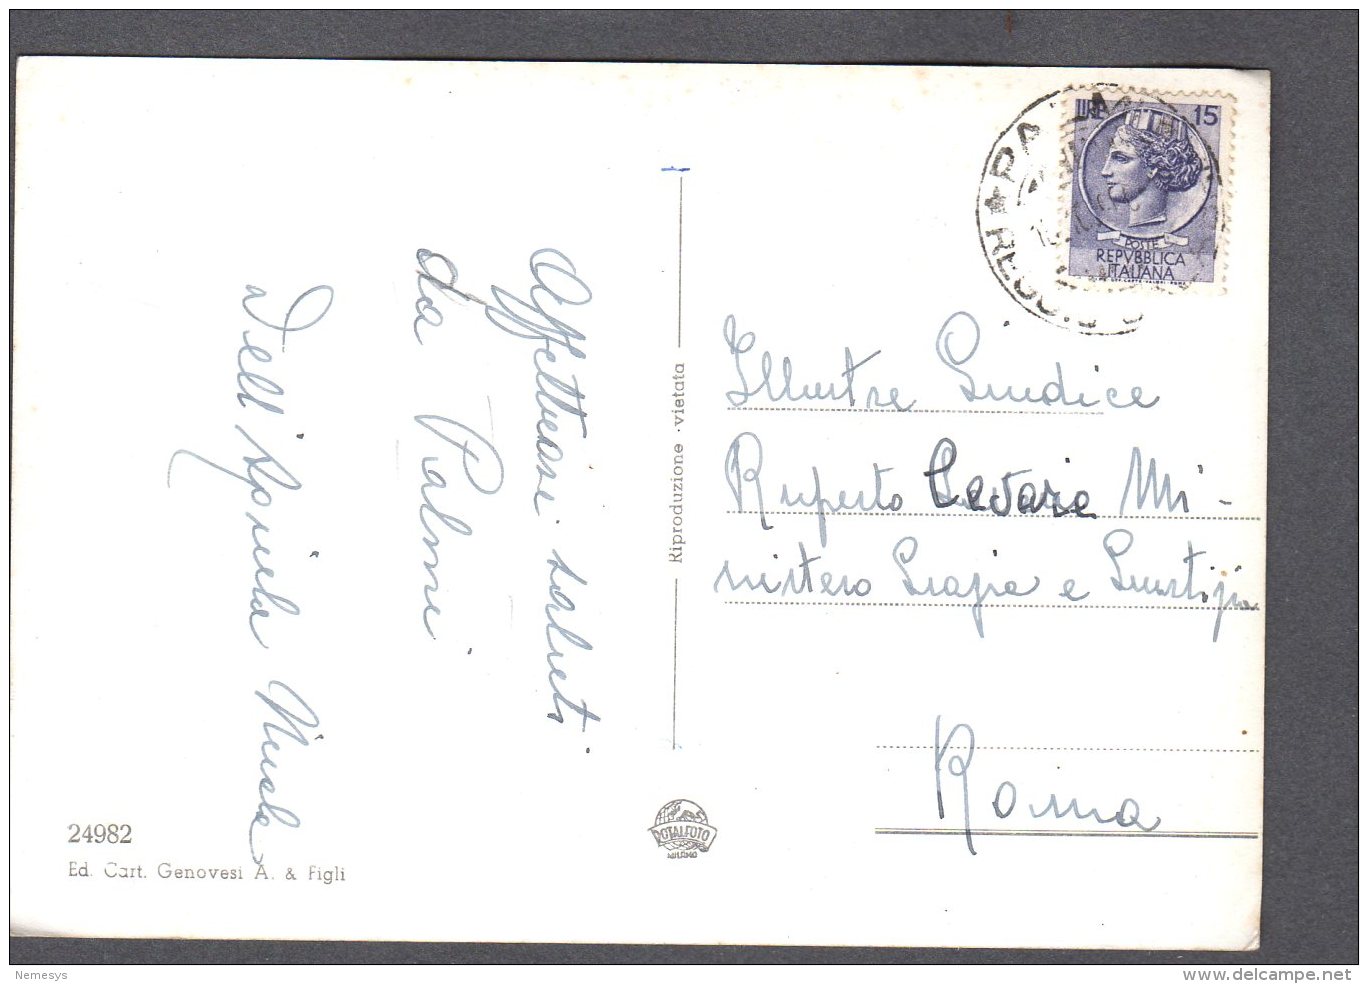 Affettuosi saluti
da Palmi
Dell'Aquila Nicola
24982
Ed. Cart. Genovesi A. & Figli
Riproduzione - vietata
ROTALFOTO
MILANO
LIRE 15
POSTE
REPVBBLICA
ITALIANA
PALMI
Illustre Giudice
Ruperto Cesare Mi-
nistero Grazia e Giustizia
Roma
Nemesys
www.delcampe.net